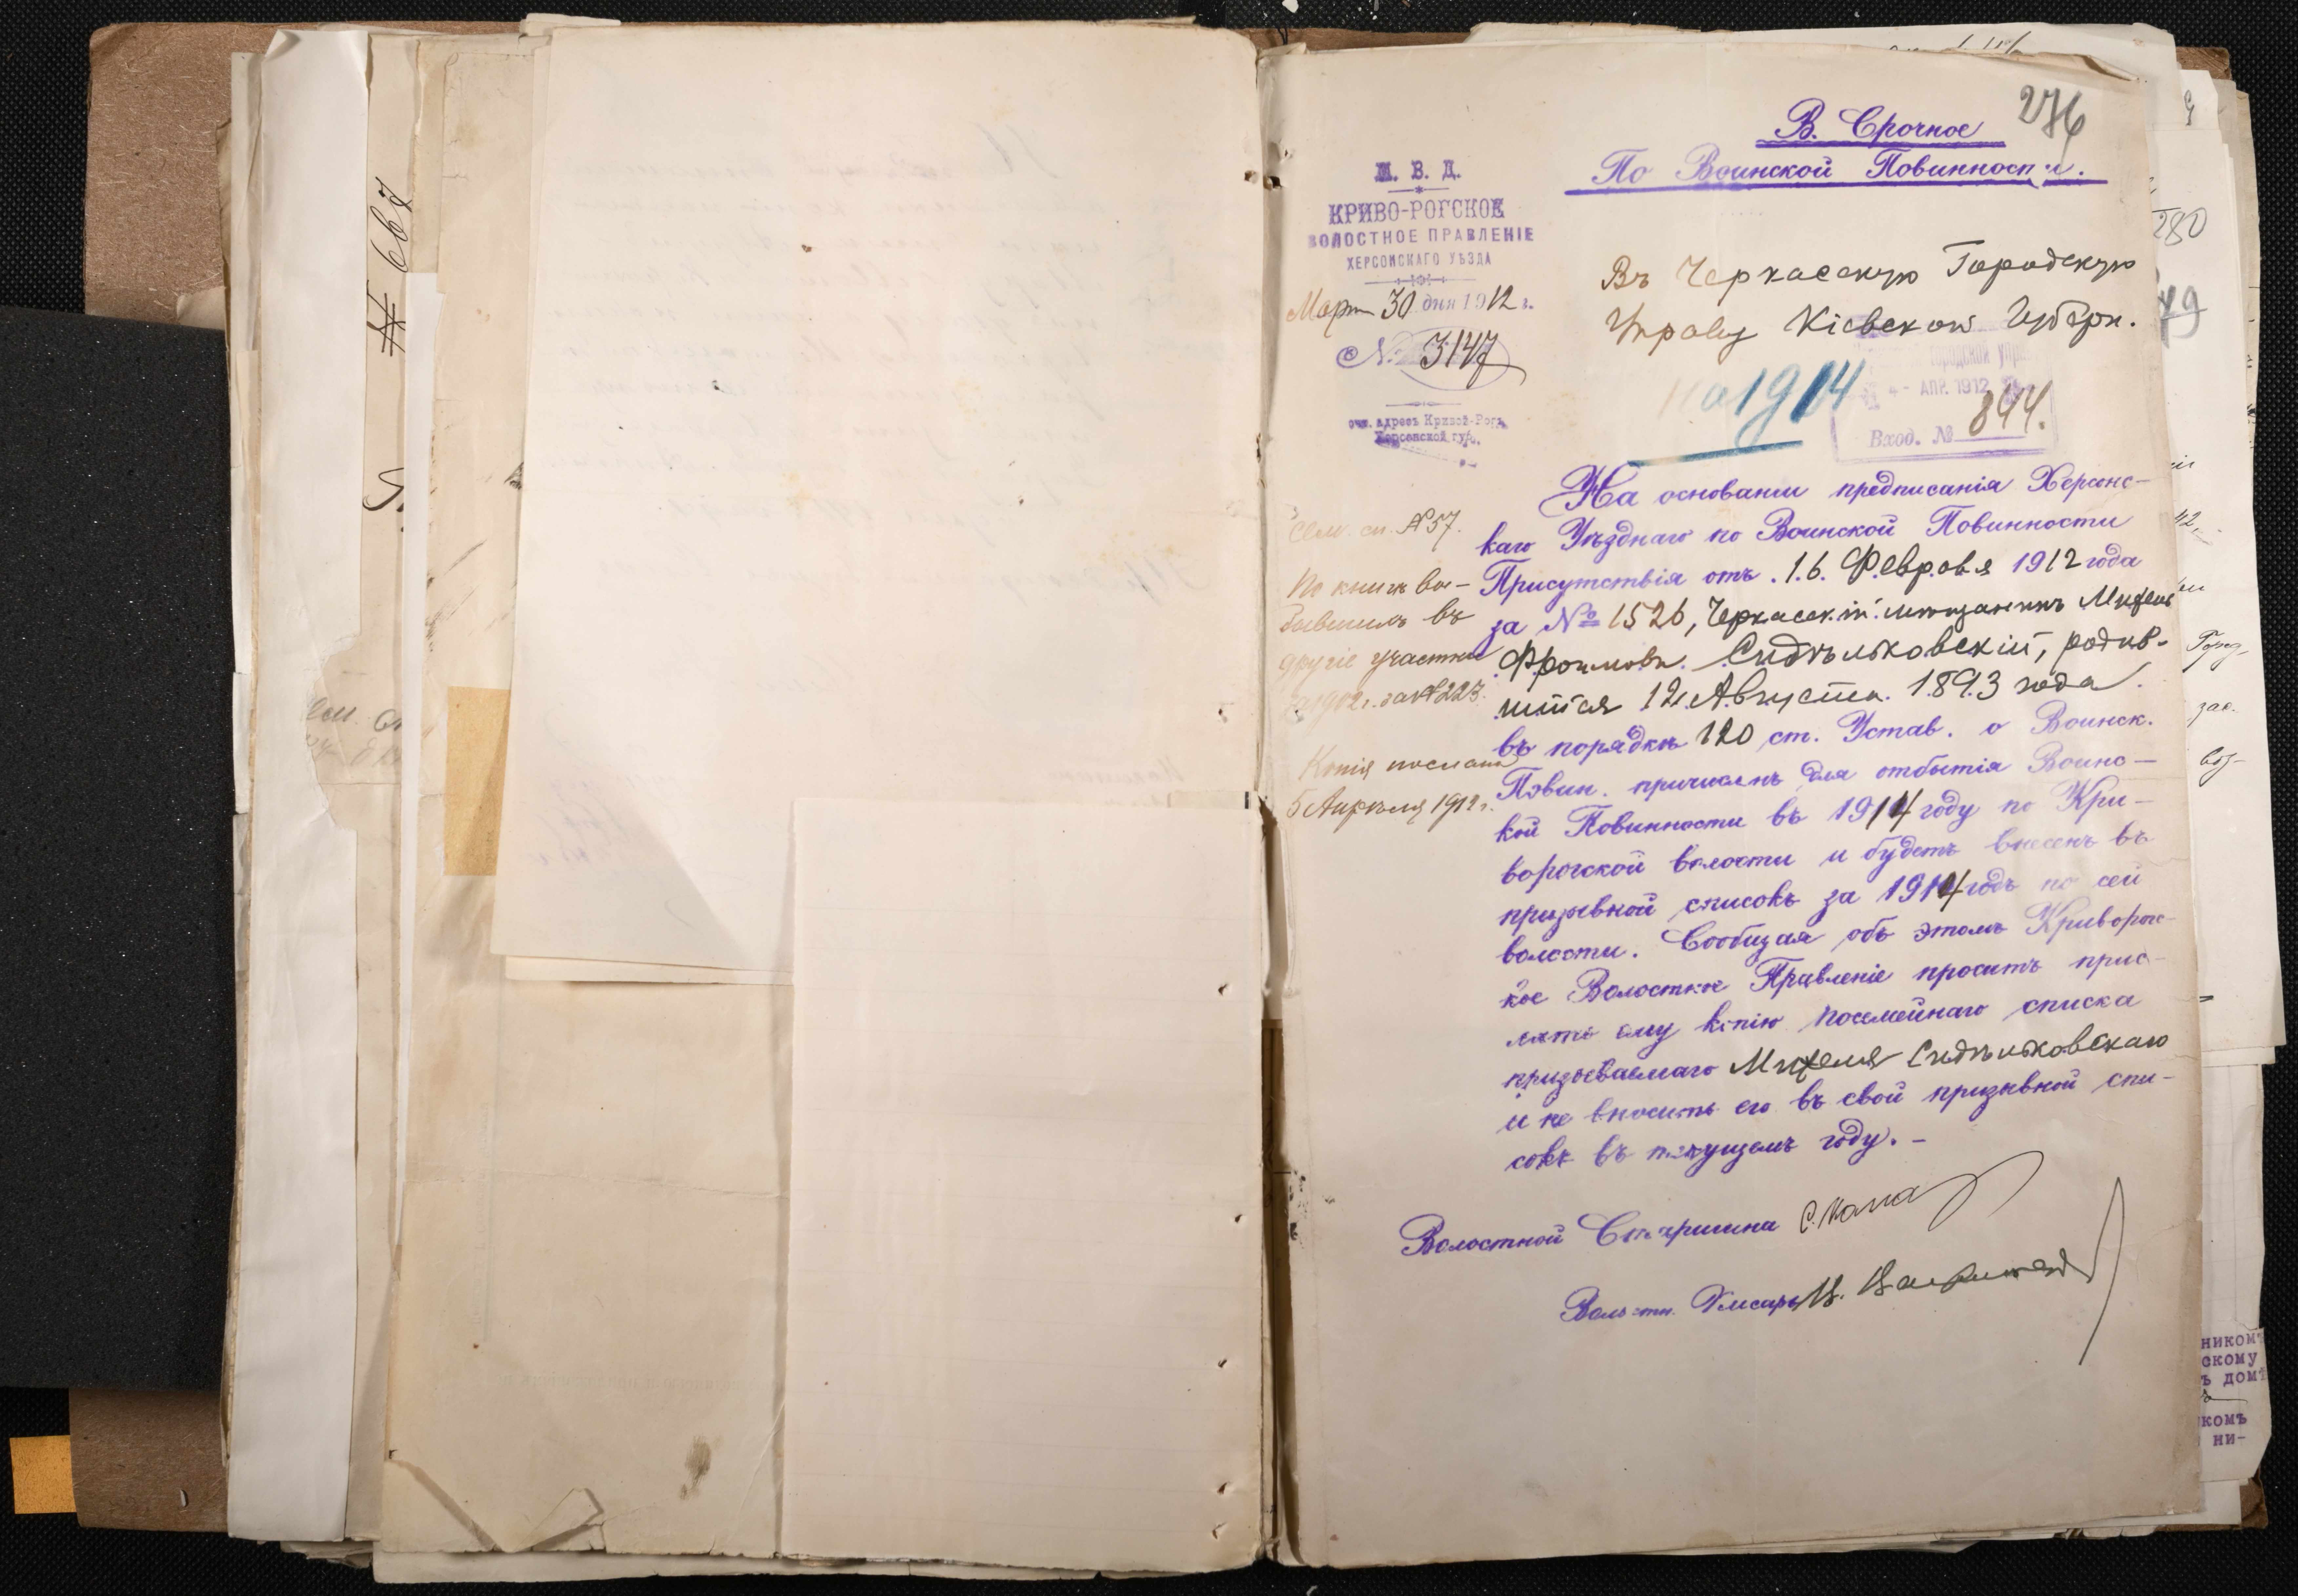 № 667
276
В. Срочное
По Воинской Повинности.
М. В. Д.
КРИВО-РОГСКОЕ
ВОЛОСТНОЕ ПРАВЛЕНІЕ
ХЕРСОНСКАГО УѢЗДА
Март 30 дня 1912 г.
№ 3147
поч. адресъ Кривой-Рогъ
Херсонской губ.
Въ Черкасскую Городскую
Управу Кіевской Губерн.
На 1914
городской упр
4 - АПР. 1912
Вход. № 844.
Сем. сп. № 57.
По книгѣ вы-
бывшимъ въ
другіе участки
за 1912 г. за № 223.
Копія послана
5 Апрѣля 1912 г.
На основаніи предписанія Херсонс-
каго Уѣзднаго по Воинской Повинности
Присутствія отъ 16 Февраля 1912 года
за № 1526, Черкасскій мѣщанинъ Михель
Фроимовъ Сидѣльковскій, родив-
шійся 12 Августа 1893 года
въ порядкѣ 120 ст. Устав. о Воинск.
Повин. причисленъ для отбытія Воинс-
кой Повинности въ 1914 году по Кри-
ворогской волости и будетъ внесенъ въ
призывной списокъ за 1914 годъ по сей
волости. Сообщая объ этомъ Криворогс-
кое Волостное Правленіе проситъ прис-
лать ему копію посемейнаго списка
призываемаго Михеля Сидѣльковскаго
и не вносить его въ свой призывной спи-
сокъ въ текущемъ году. -
Волостной Старшина
Волостн. Писарь
280
49
42
Город-
зас.
воз-
никомъ
скому
ъ домѣ
комъ
ни-